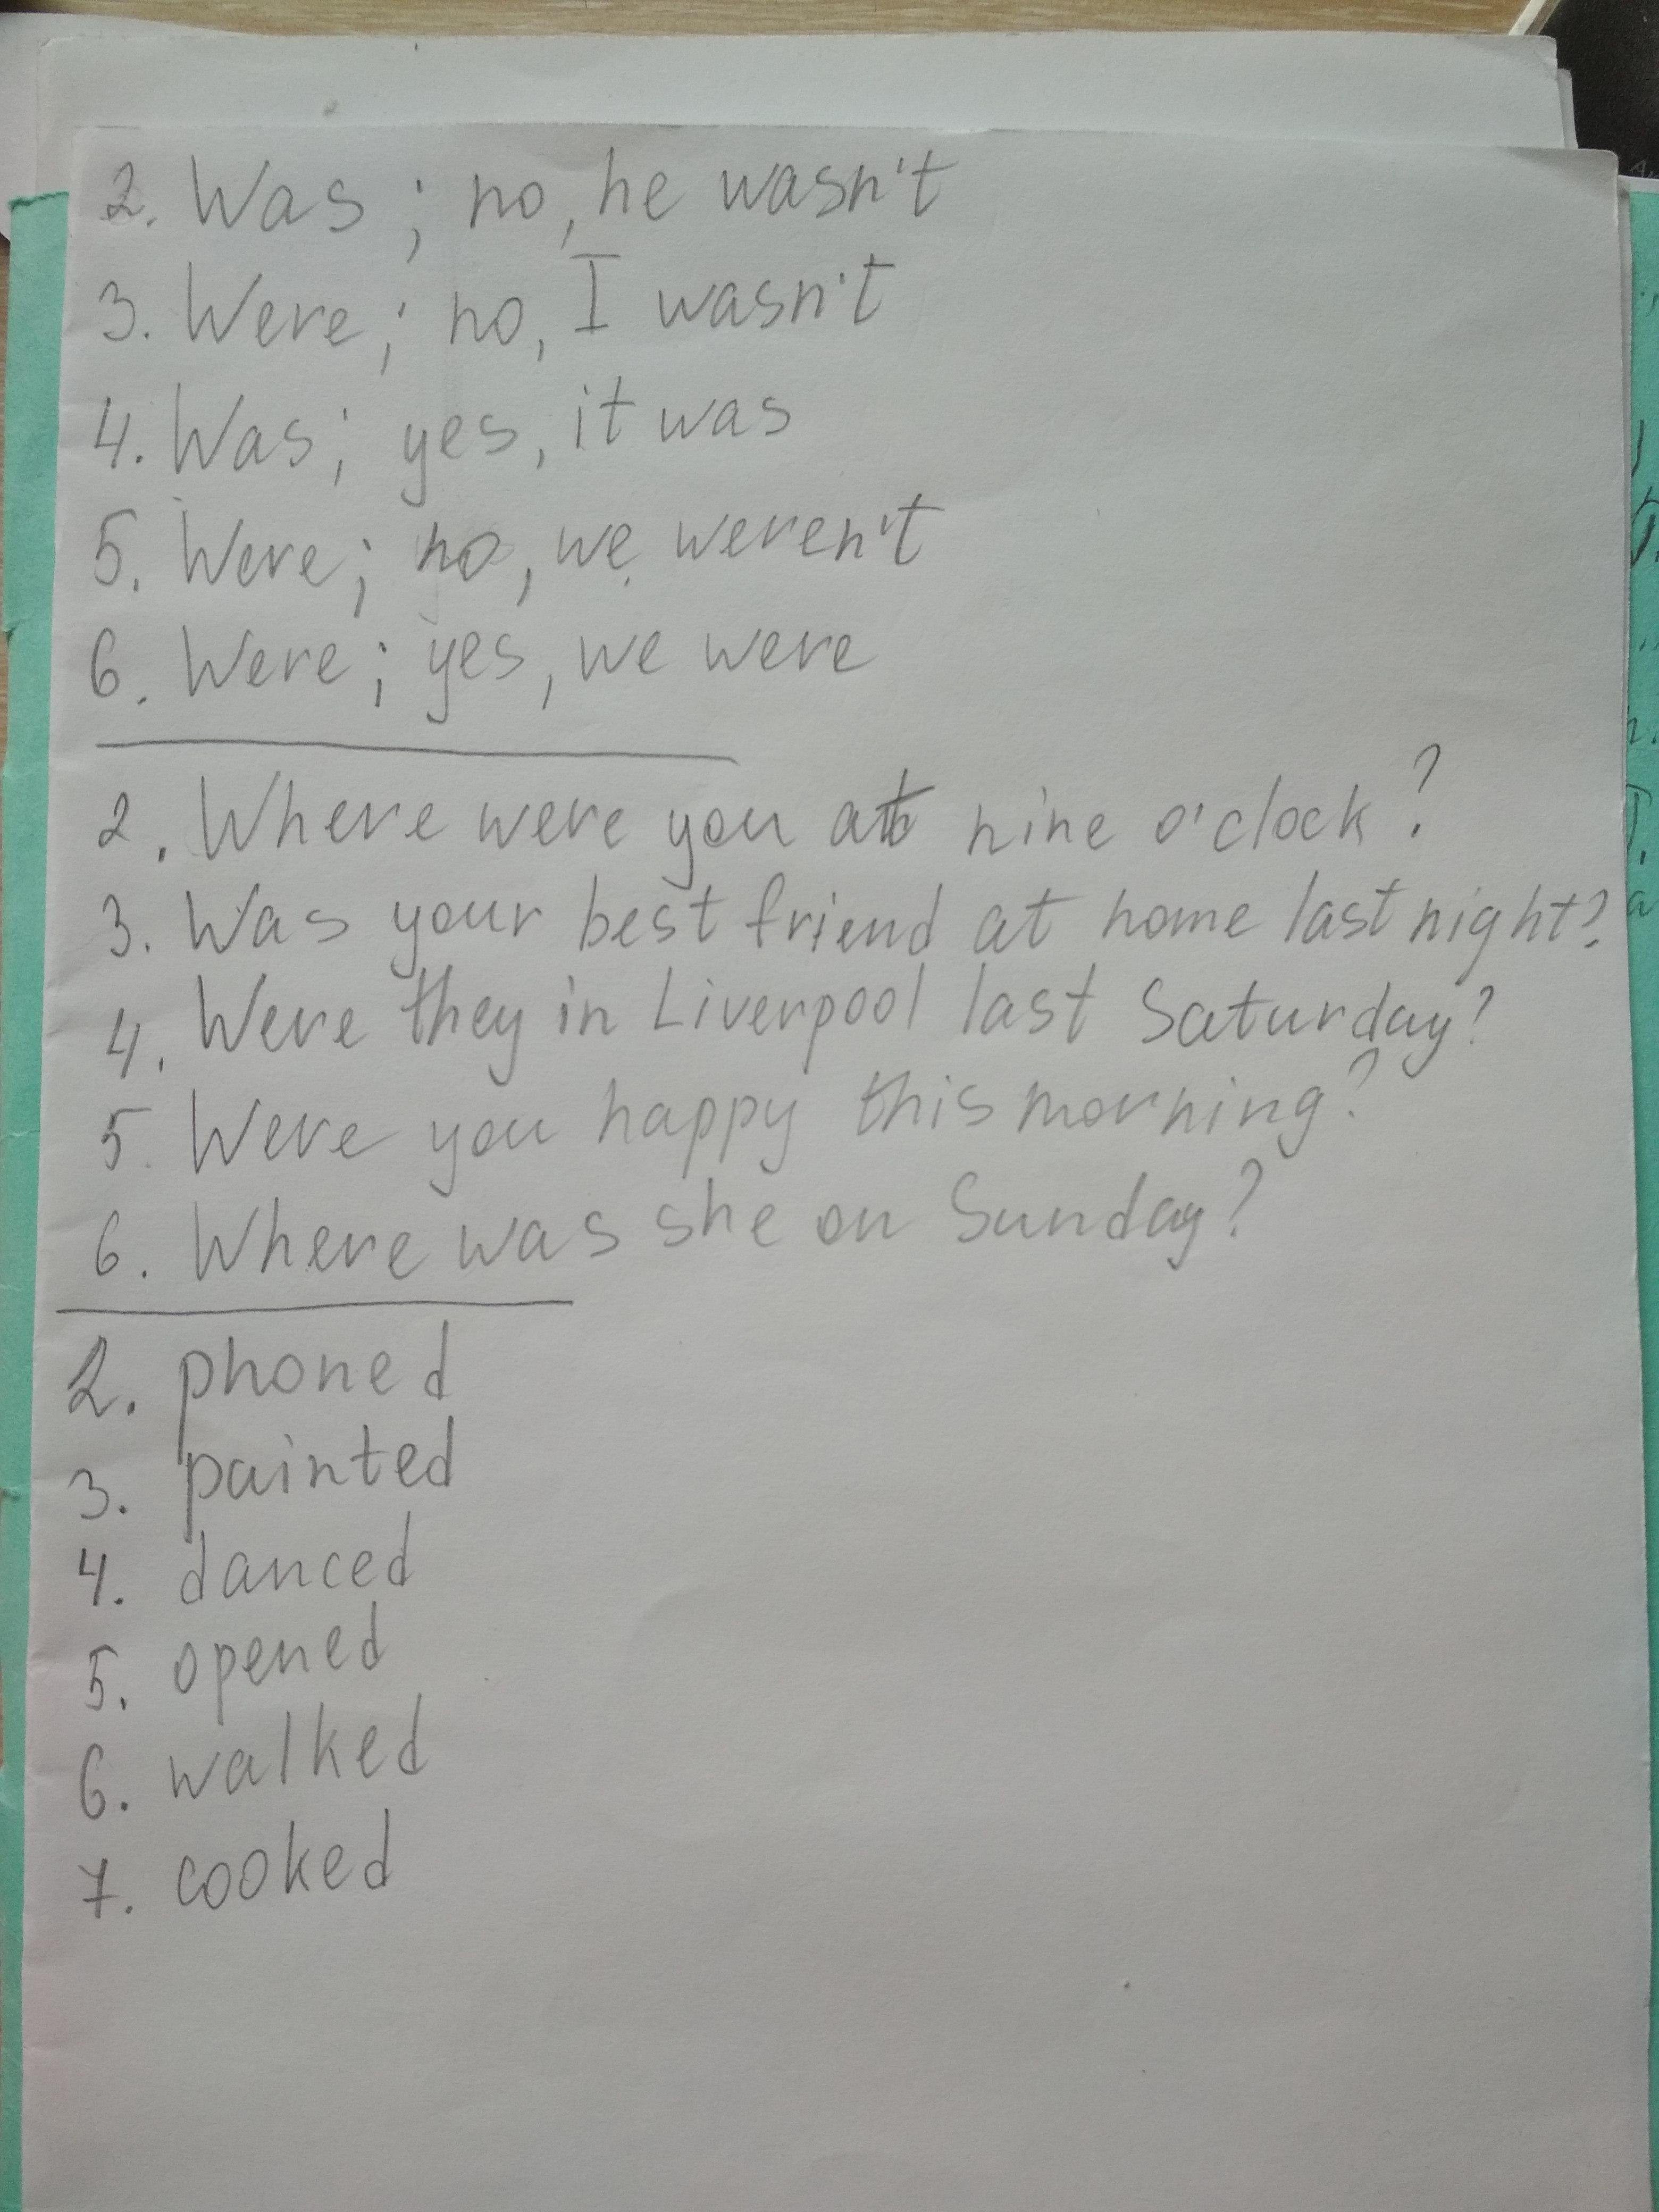 2. Was; no, he wasn't
3. Were; no, I wasn't
4. Was; yes, it was
5. Were; no, we weren't
6. Were; yes, we were
2. Where were you at nine o'clock?
3. Was your best friend at home last night?
4. Were they in Liverpool last Saturday?
5. Were you happy this morning?
6. Where was she on Sunday?
2. phoned
3. painted
4. danced
5. opened
6. walked
7. cooked